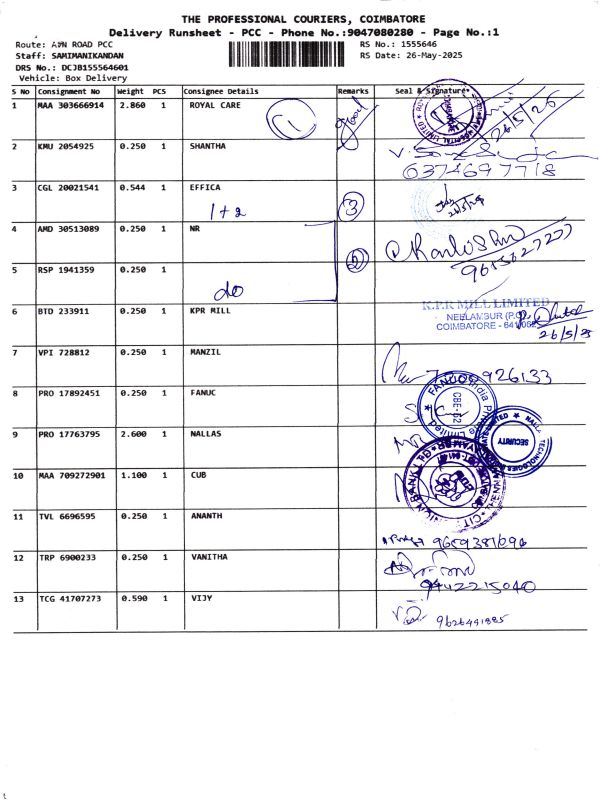 THE PROFESSIONAL COURIERS, COIMBATORE
Delivery Runsheet - PCC - Phone No.:9047080280 - Page No.:1
Route: ROAD PCC
RS No.: 1555646
Staff: SAMIMANIKANDAN
RS Date: 26-May-2025
DRS No.: DCJB155564601
Vehicle: Box Delivery
S No Consignment No Weight PCS Consignee Details Remarks Seal & Signature
1 MAA 303666914 2.860 1 ROYAL CARE 26/5/26
2 KMU 2054925 0.250 1 SHANTHA
6374697718
3 CGL 20021541 0.544 1 EFFICA
1+2 3
4 AMD 30513089 0.250 1 NR
9615627277
5 RSP 1941359 0.250 1
do
6 BTD 233911 0.250 1 KPR MILL K.P.R MILL LIMITED
NEELAMBUR (P.O)
COIMBATORE - 641062
26/5/25
7 VPI 728812 0.250 1 MANZIL
926133
8 PRO 17892451 0.250 1 FANUC FANUC India CBE-62
9 PRO 17763795 2.600 1 NALLAS SECURITY
10 MAA 709272901 1.100 1 CUB
11 TVL 6696595 0.250 1 ANANTH
12 TRP 6900233 0.250 1 VANITHA
9442215040
13 TCG 41707273 0.590 1 VIJY
9626491885